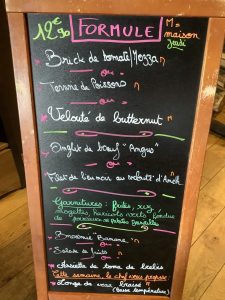 12€90 FORMULE M = maison
Jeudi
Brick de tomate/Mozza M
ou
Terrine de Poisson M
ou
Velouté de butternut M
Onglet de bœuf "Angus" M
ou
Filet de
Garnitures: frites, riz
mogettes, haricots verts, fondue
de poireaux
Brownie Banane M
ou
Salade de fruits M
ou
Assiette de tome de brebis
Cette semaine, le chef vous propose
Longe de veau braisé M
(basse température)